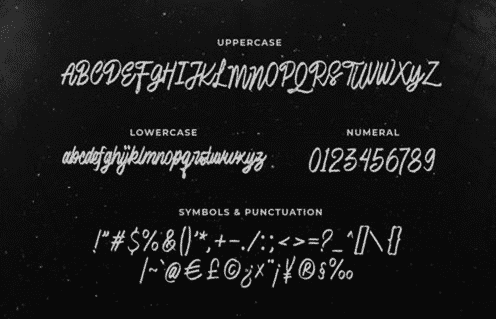 UPPERCASE
ABCDEFGHIJKLMNOPQRSTUVWXYZ
LOWERCASE
abcdefghijklmnopqrstuvwxyz
NUMERAL
0123456789
SYMBOLS & PUNCTUATION
!"#$%&()'*,+-./:;<>=?_^[]\{}
|~`@€£©¿×¨¡¥®§‰